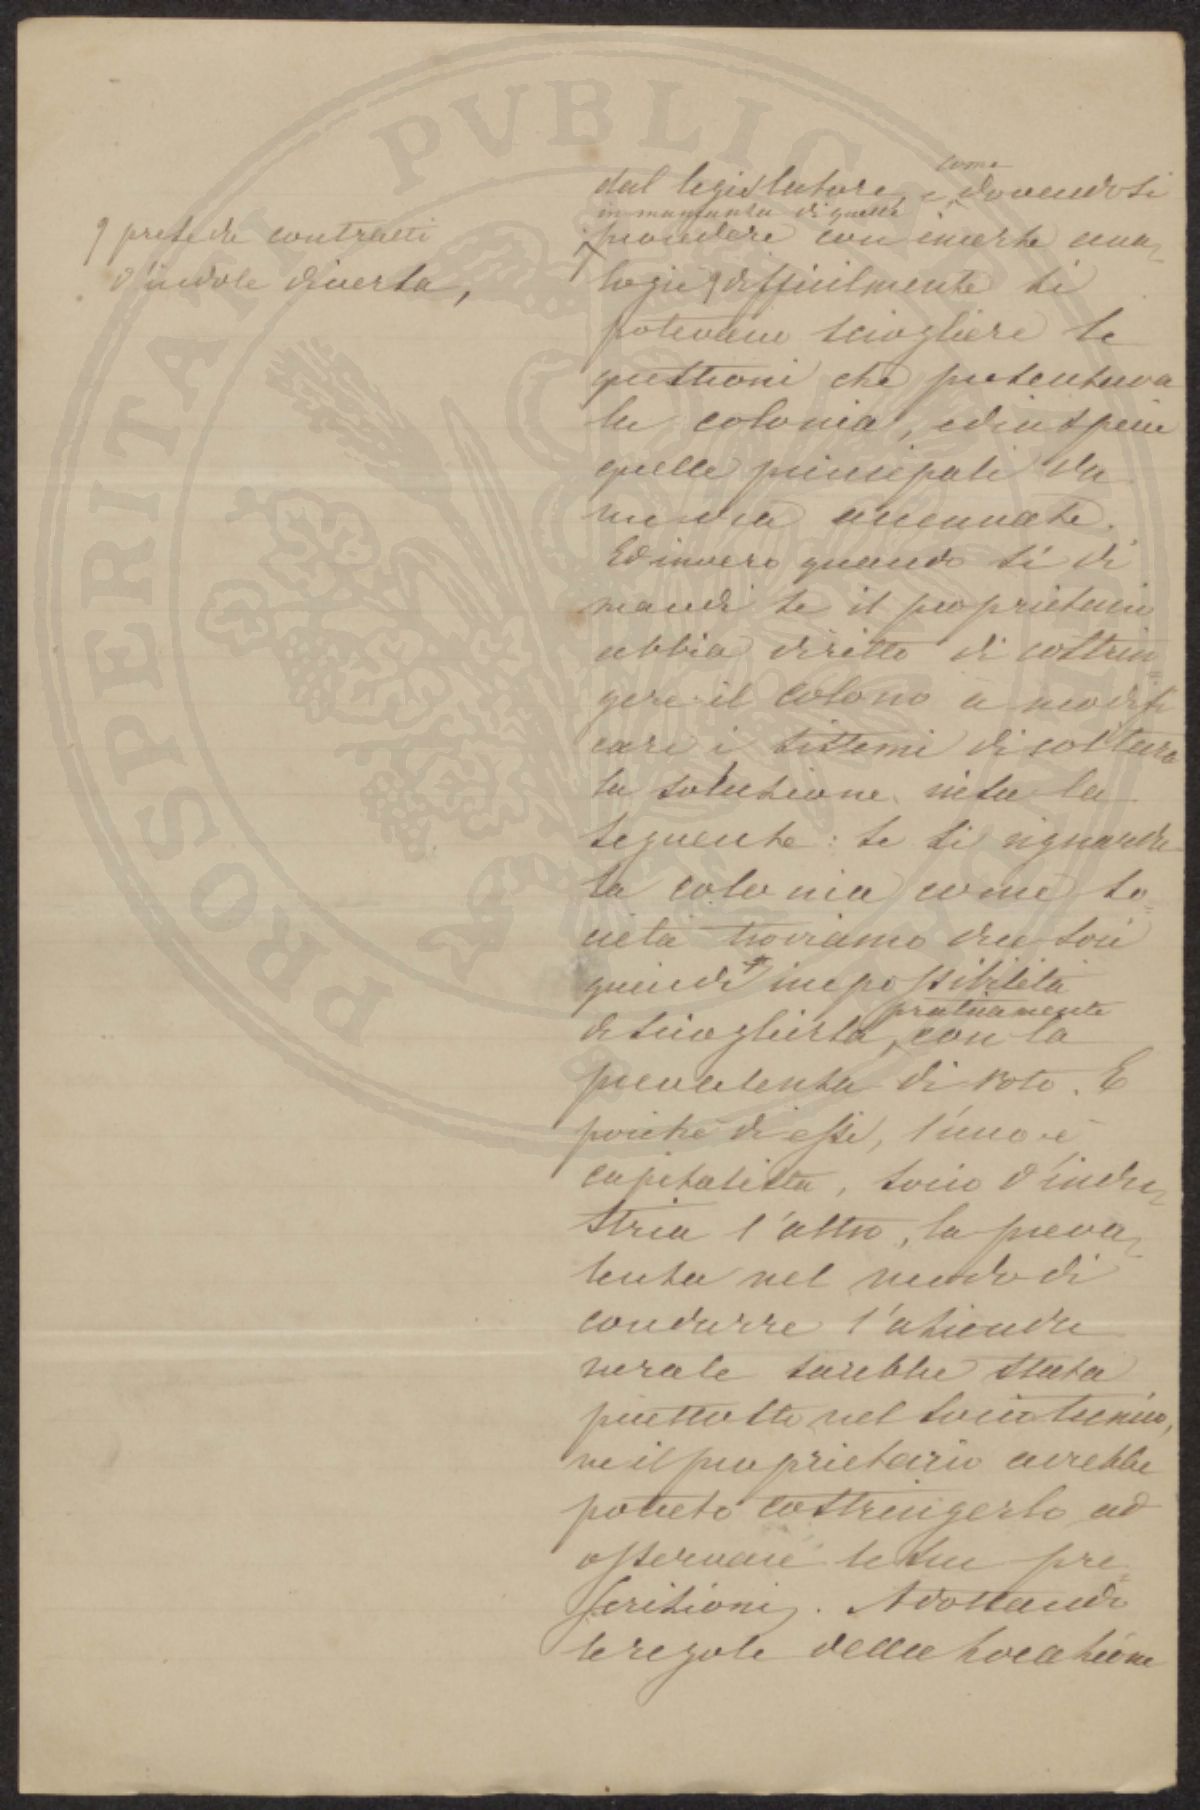 PROSPERITATI PVBLICAE
come
dal legislatore, e dovendosi
in mancanza di queste
procedere con incerte ana,
logie, difficilmente si
potevano sciogliere le
questioni che presentava
la colonia, ed in specie
quelle principali da
me via accennate.
Ed invero quando si di
mandi se il proprietario
abbia diritto di costrin=
gere il colono a modifi
care i sistemi di coltura
la soluzione
seguente: se si riguarda
la colonia come so=
cietà troviamo due soci
quindi impossibilità
praticamente
di sciogliersi, con la
prevalenza di voto. E
poiché di essi, l'uno è
capitalista, socio d'indu,
stria l'altro, la preva,
lenza nel modo di
condurre l'azienda
rurale sarebbe stata
piuttosto nel socio tecnico,
ne il proprietario avrebbe
potuto costringerlo ad
osservare le sue pre=
scrizioni. Adottando
le regole della locazione
prese da contratti
d'indole diversa,